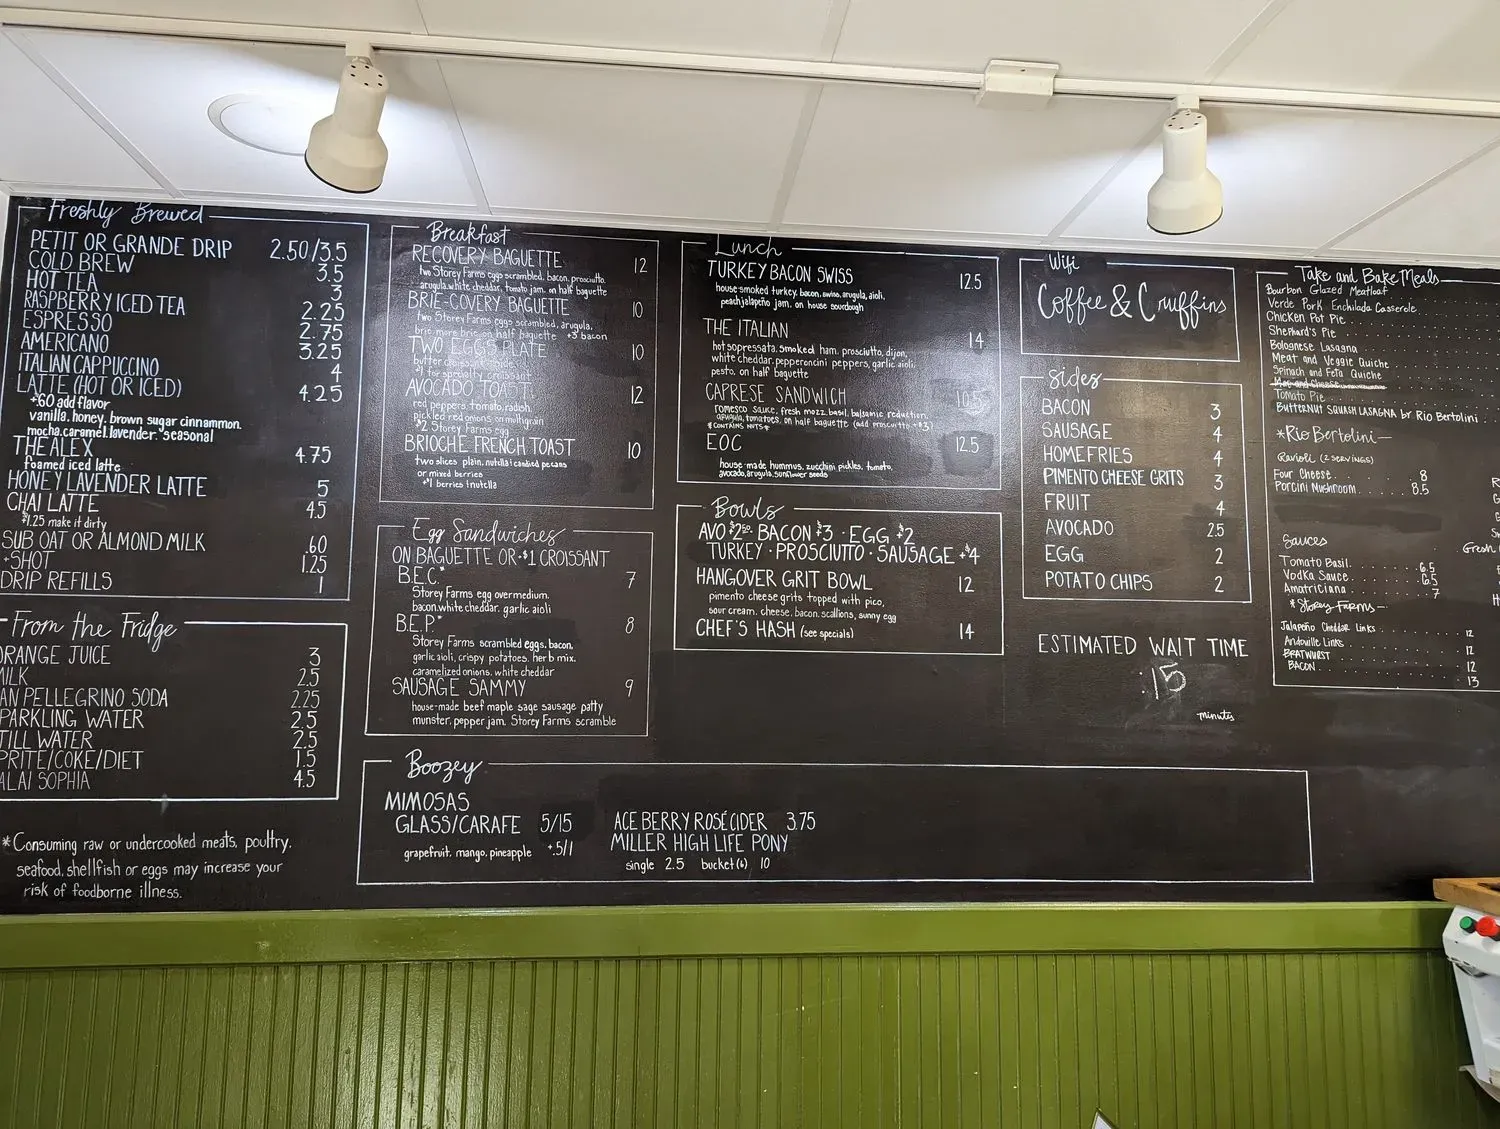 Freshly Brewed
PETIT OR GRANDE DRIP 2.50/3.5
COLD BREW 3.5
HOT TEA 3
RASPBERRY ICED TEA 2.25
ESPRESSO 2.75
AMERICANO 3.25
ITALIAN CAPPUCCINO 4
LATTE (HOT OR ICED) 4.25
+.60 add flavor
vanilla, honey, brown sugar cinnammon,
mocha, caramel, lavender, seasonal
THE ALEX 4.75
foamed iced latte
HONEY LAVENDER LATTE 5
CHAI LATTE 4.5
$1.25 make it dirty
SUB OAT OR ALMOND MILK .60
+SHOT 1.25
DRIP REFILLS 1
From the Fridge
ORANGE JUICE 3
MILK 2.5
AN PELLEGRINO SODA 2.25
PARKLING WATER 2.5
TILL WATER 2.5
PRITE/COKE/DIET 1.5
ALAI SOPHIA 4.5
*Consuming raw or undercooked meats, poultry,
seafood, shellfish or eggs may increase your
risk of foodborne illness.
Breakfast
RECOVERY BAGUETTE 12
two Storey Farms eggs scrambled, bacon, prosciutto,
arugula, white cheddar, tomato jam, on half baguette
BRIE-COVERY BAGUETTE 10
two Storey Farms eggs scrambled, arugula,
brie, more brie, on half baguette +3 bacon
TWO EGGS PLATE 10
butter croissant, side
$1 for specialty croissant
AVOCADO TOAST 12
red peppers, tomato, radish,
pickled red onions on multigrain
$2 Storey Farms egg
BRIOCHE FRENCH TOAST 10
two slices plain, nutella+candied pecans
or mixed berries
+$1 berries+nutella
Egg Sandwiches
ON BAGUETTE OR +$1 CROISSANT
B.E.C.* 7
Storey Farms egg overmedium,
bacon, white cheddar, garlic aioli
B.E.P.* 8
Storey Farms scrambled eggs, bacon,
garlic aioli, crispy potatoes, herb mix,
caramelized onions, white cheddar
SAUSAGE SAMMY 9
house-made beef maple sage sausage patty
munster, pepper jam, Storey Farms scramble
Lunch
TURKEY BACON SWISS 12.5
house smoked turkey, bacon, swiss, arugula, aioli,
peach jalapeño jam, on house sourdough
THE ITALIAN 14
hot sopressata, smoked ham, prosciutto, dijon,
white cheddar, pepperoncini peppers, garlic aioli,
pesto, on half baguette
CAPRESE SANDWICH 10.5
romesco sauce, fresh mozz, basil, balsamic reduction,
arugula, tomatoes, on half baguette (add prosciutto +$3)
*CONTAINS NUTS*
EOC 12.5
house-made hummus, zucchini pickles, tomato,
avocado, arugula, sunflower seeds
Bowls
AVO $2.50 · BACON $3 · EGG $2
TURKEY · PROSCIUTTO · SAUSAGE +$4
HANGOVER GRIT BOWL 12
pimento cheese grits topped with pico,
sour cream, cheese, bacon, scallions, sunny egg
CHEF'S HASH (see specials) 14
Boozey
MIMOSAS
GLASS/CARAFE 5/15
grapefruit, mango, pineapple +.5/1
ACE BERRY ROSÉ CIDER 3.75
MILLER HIGH LIFE PONY
single 2.5 bucket(6) 10
Wifi
Coffee & Cruffins
Sides
BACON 3
SAUSAGE 4
HOMEFRIES 4
PIMENTO CHEESE GRITS 3
FRUIT 4
AVOCADO 2.5
EGG 2
POTATO CHIPS 2
ESTIMATED WAIT TIME
:15
minutes
Take and Bake Meals
Bourbon Glazed Meatloaf
Verde Pork Enchilada Casserole
Chicken Pot Pie
Shepherd's Pie
Bolognese Lasagna
Meat and Veggie Quiche
Spinach and Feta Quiche
Mac and Cheese
Tomato Pie
Butternut Squash Lasagna by Rio Bertolini
*Rio Bertolini—
Ravioli (2 servings)
Four Cheese 8
Porcini Mushroom 8.5
Sauces
Tomato Basil 6.5
Vodka Sauce 6.5
Amatriciana 7
*Storey Farms—
Jalapeño Cheddar Links 12
Andouille Links 12
Bratwurst 12
Bacon 13